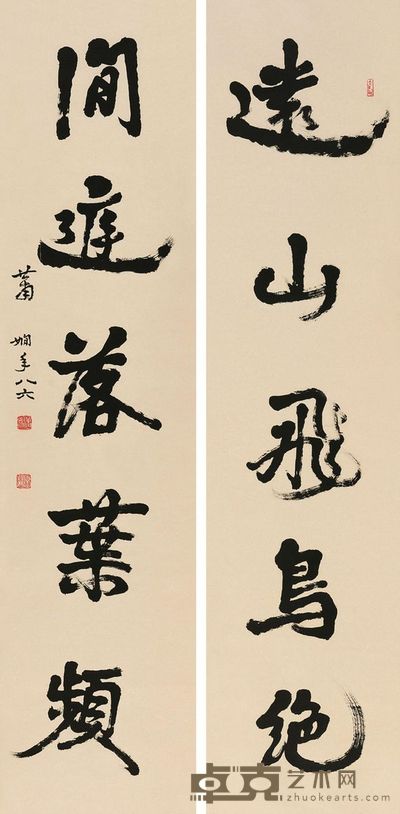 遠山飛鳥絶
閒庭落葉頻
蕭嫻年八六
卓克艺术网
zhuokearts.com